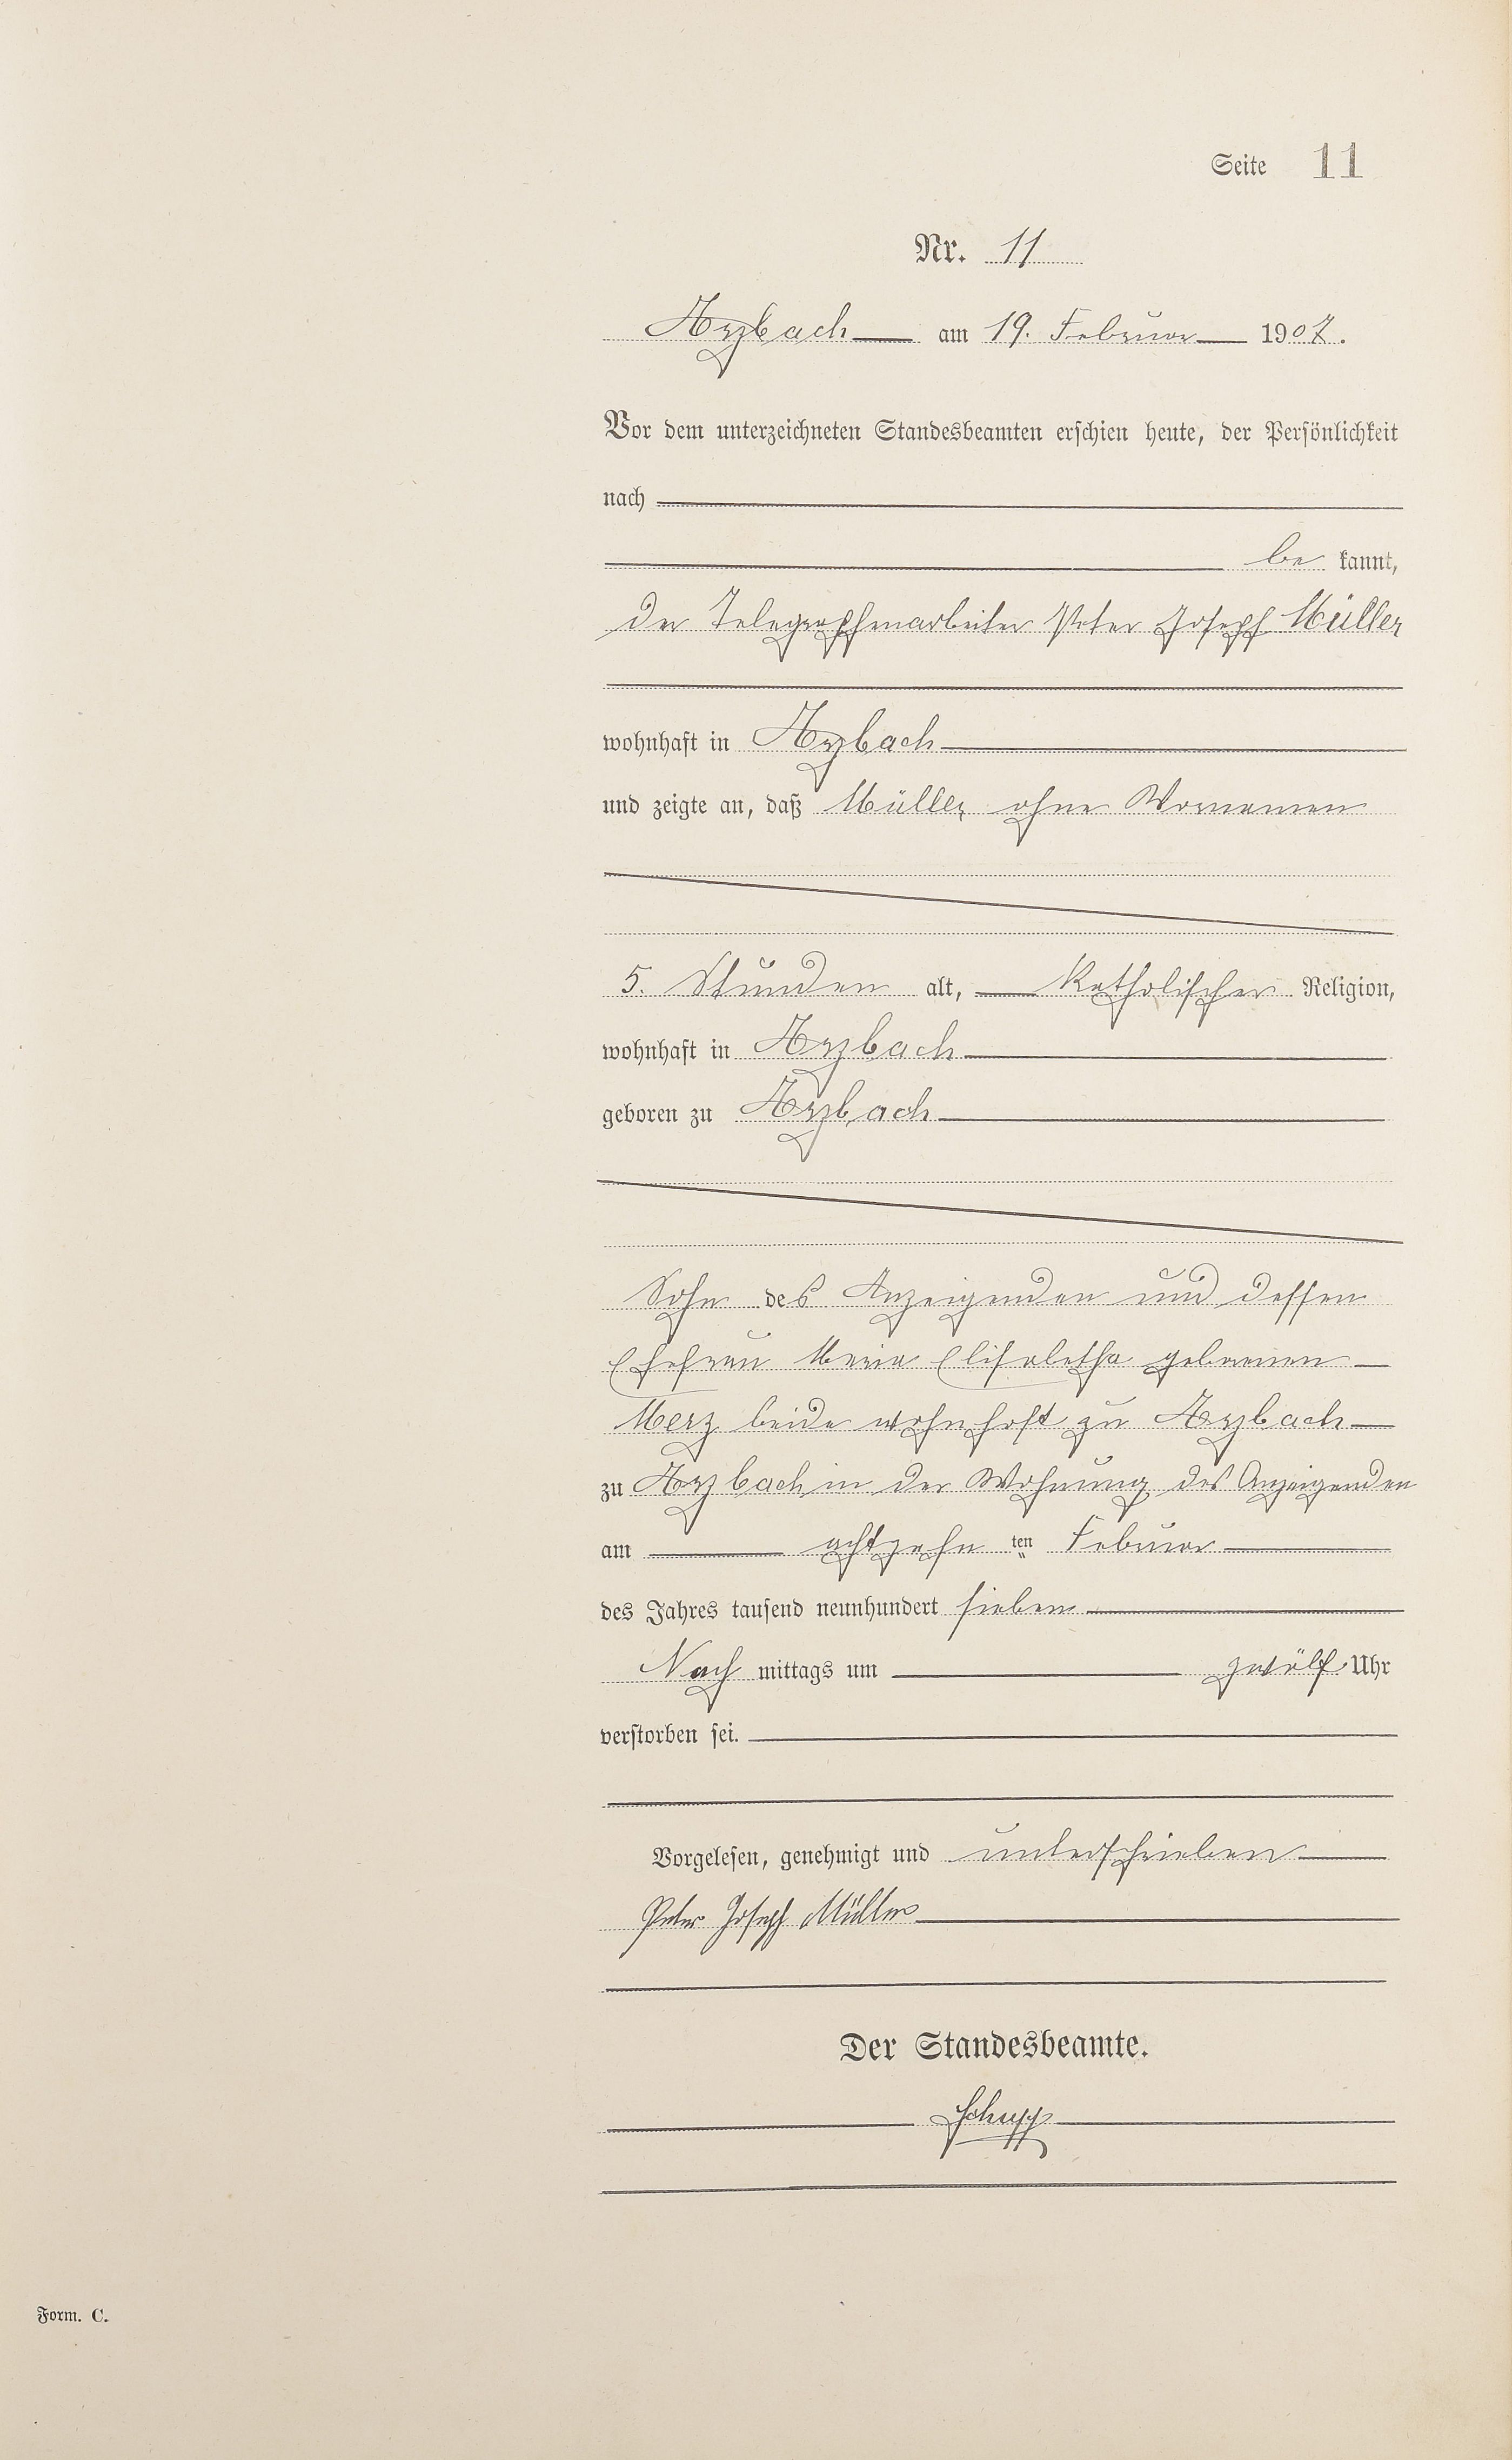 Seite 11
Nr. 11
Arzbach am 19. Februar 1907.
Vor dem unterzeichneten Standesbeamten erschien heute, der Persönlichkeit
nach
be kannt,
der Telegraphenarbeiter Peter Joseph Müller
wohnhaft in Arzbach
und zeigte an, daß Müller ohne Vornamen
5. Stunden alt, katholischer Religion,
wohnhaft in Arzbach
geboren zu Arzbach
Sohn des Anzeigenden und dessen
Ehefrau Maria Elisabetha geborenen
Merz beide wohnhaft zu Arzbach
zu Arzbach in der Wohnung des Anzeigenden
am achtzehn ten Februar
des Jahres tausend neunhundert sieben
Nach mittags um zwölf Uhr
verstorben sei.
Vorgelesen, genehmigt und unterschrieben
Peter Joseph Müller
Der Standesbeamte.
Schupp
Form. C.